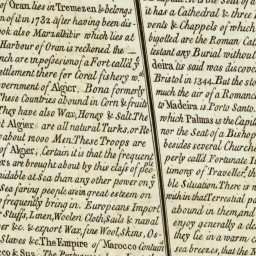 of Oran, lies in Tremezen & belongs
it in 1732. After having been dis-
ook also Marzalkibir which lies at
Harbour of Oran is reckoned the
nch are in possession of a Fort call'd
ettlement there for Coral fishery w.
overnment of Algier. Bona formerly
These Countries abound in Corn & fruits
They have also Wax, Honey & Salt. The
at Algier are all natural Turks, or Re-
about 12000 Men. These Troops are
of Algier. Certain it is that the frequent
ers are brought about by this class of peo-
idable at Sea than any other power on y
Sea faring people are in great esteem on
y frequently bring in. Europeans Import
Stuffs, Linen, Woolen Cloth, Sails & naval
er &c. & export Wax, fine Wool, Skins, Os-
Slaves &c. The Empire of Marocco Contain
it has a Cathedral & three
vents & Chappels of which
bigotted are the Roman Cat
testant any Burial without
deira its said was discover
Bristol in 1344. But the sto
much the air of a Romance
to Madeira is Porto Santo.
which Palmas is the Capital
nor the Seat of a Bishop
besides several Churches
perly call'd Fortunate I
timony of Traveller's the
ble Situation. There is n
within that Terrestrial pa
abound in them, and
enjoy generally a de
they lie in a warm c
breezes, that the